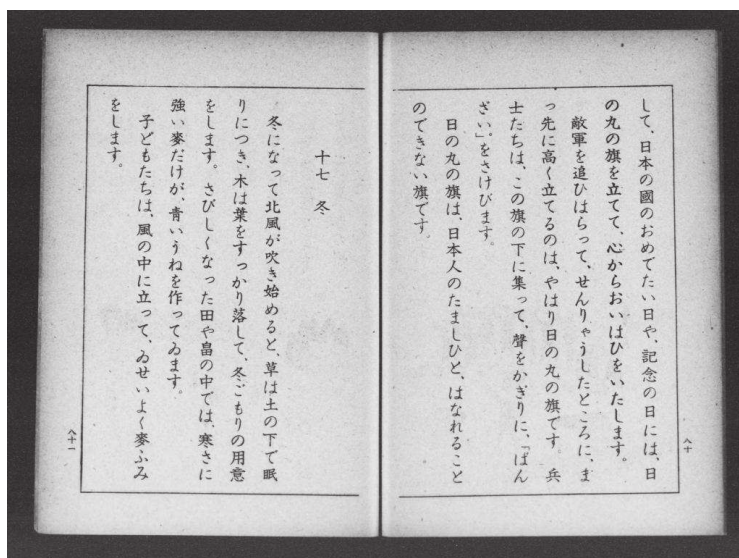 して、日本の國のおめでたい日や、記念の日には、日
の丸の旗を立てて、心からおいはひをいたします。
敵軍を追ひはらって、せんりゃうしたところに、ま
っ先に高く立てるのは、やはり日の丸の旗です。兵
士たちは、この旗の下に集って、聲をかぎりに、「ばん
ざい。」をさけびます。
日の丸の旗は、日本人のたましひと、はなれること
のできない旗です。
八十
十七 冬
冬になって北風が吹き始めると、草は土の下で眠
りにつき、木は葉をすっかり落して、冬ごもりの用意
をします。さびしくなった田や畠の中では、寒さに
強い麥だけが、青いうねを作ってゐます。
子どもたちは、風の中に立って、ゐせいよく麥ふみ
をします。
八十一